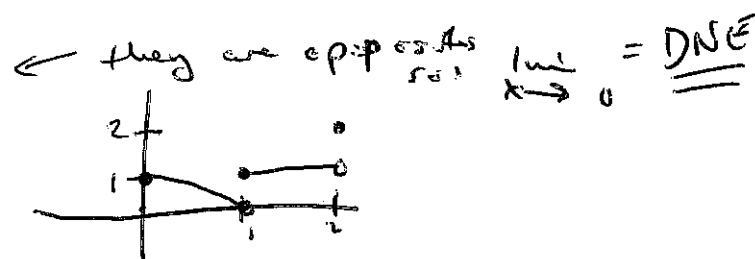 ← they are opposites so! lim x→0 = DNE
2
1
1 2